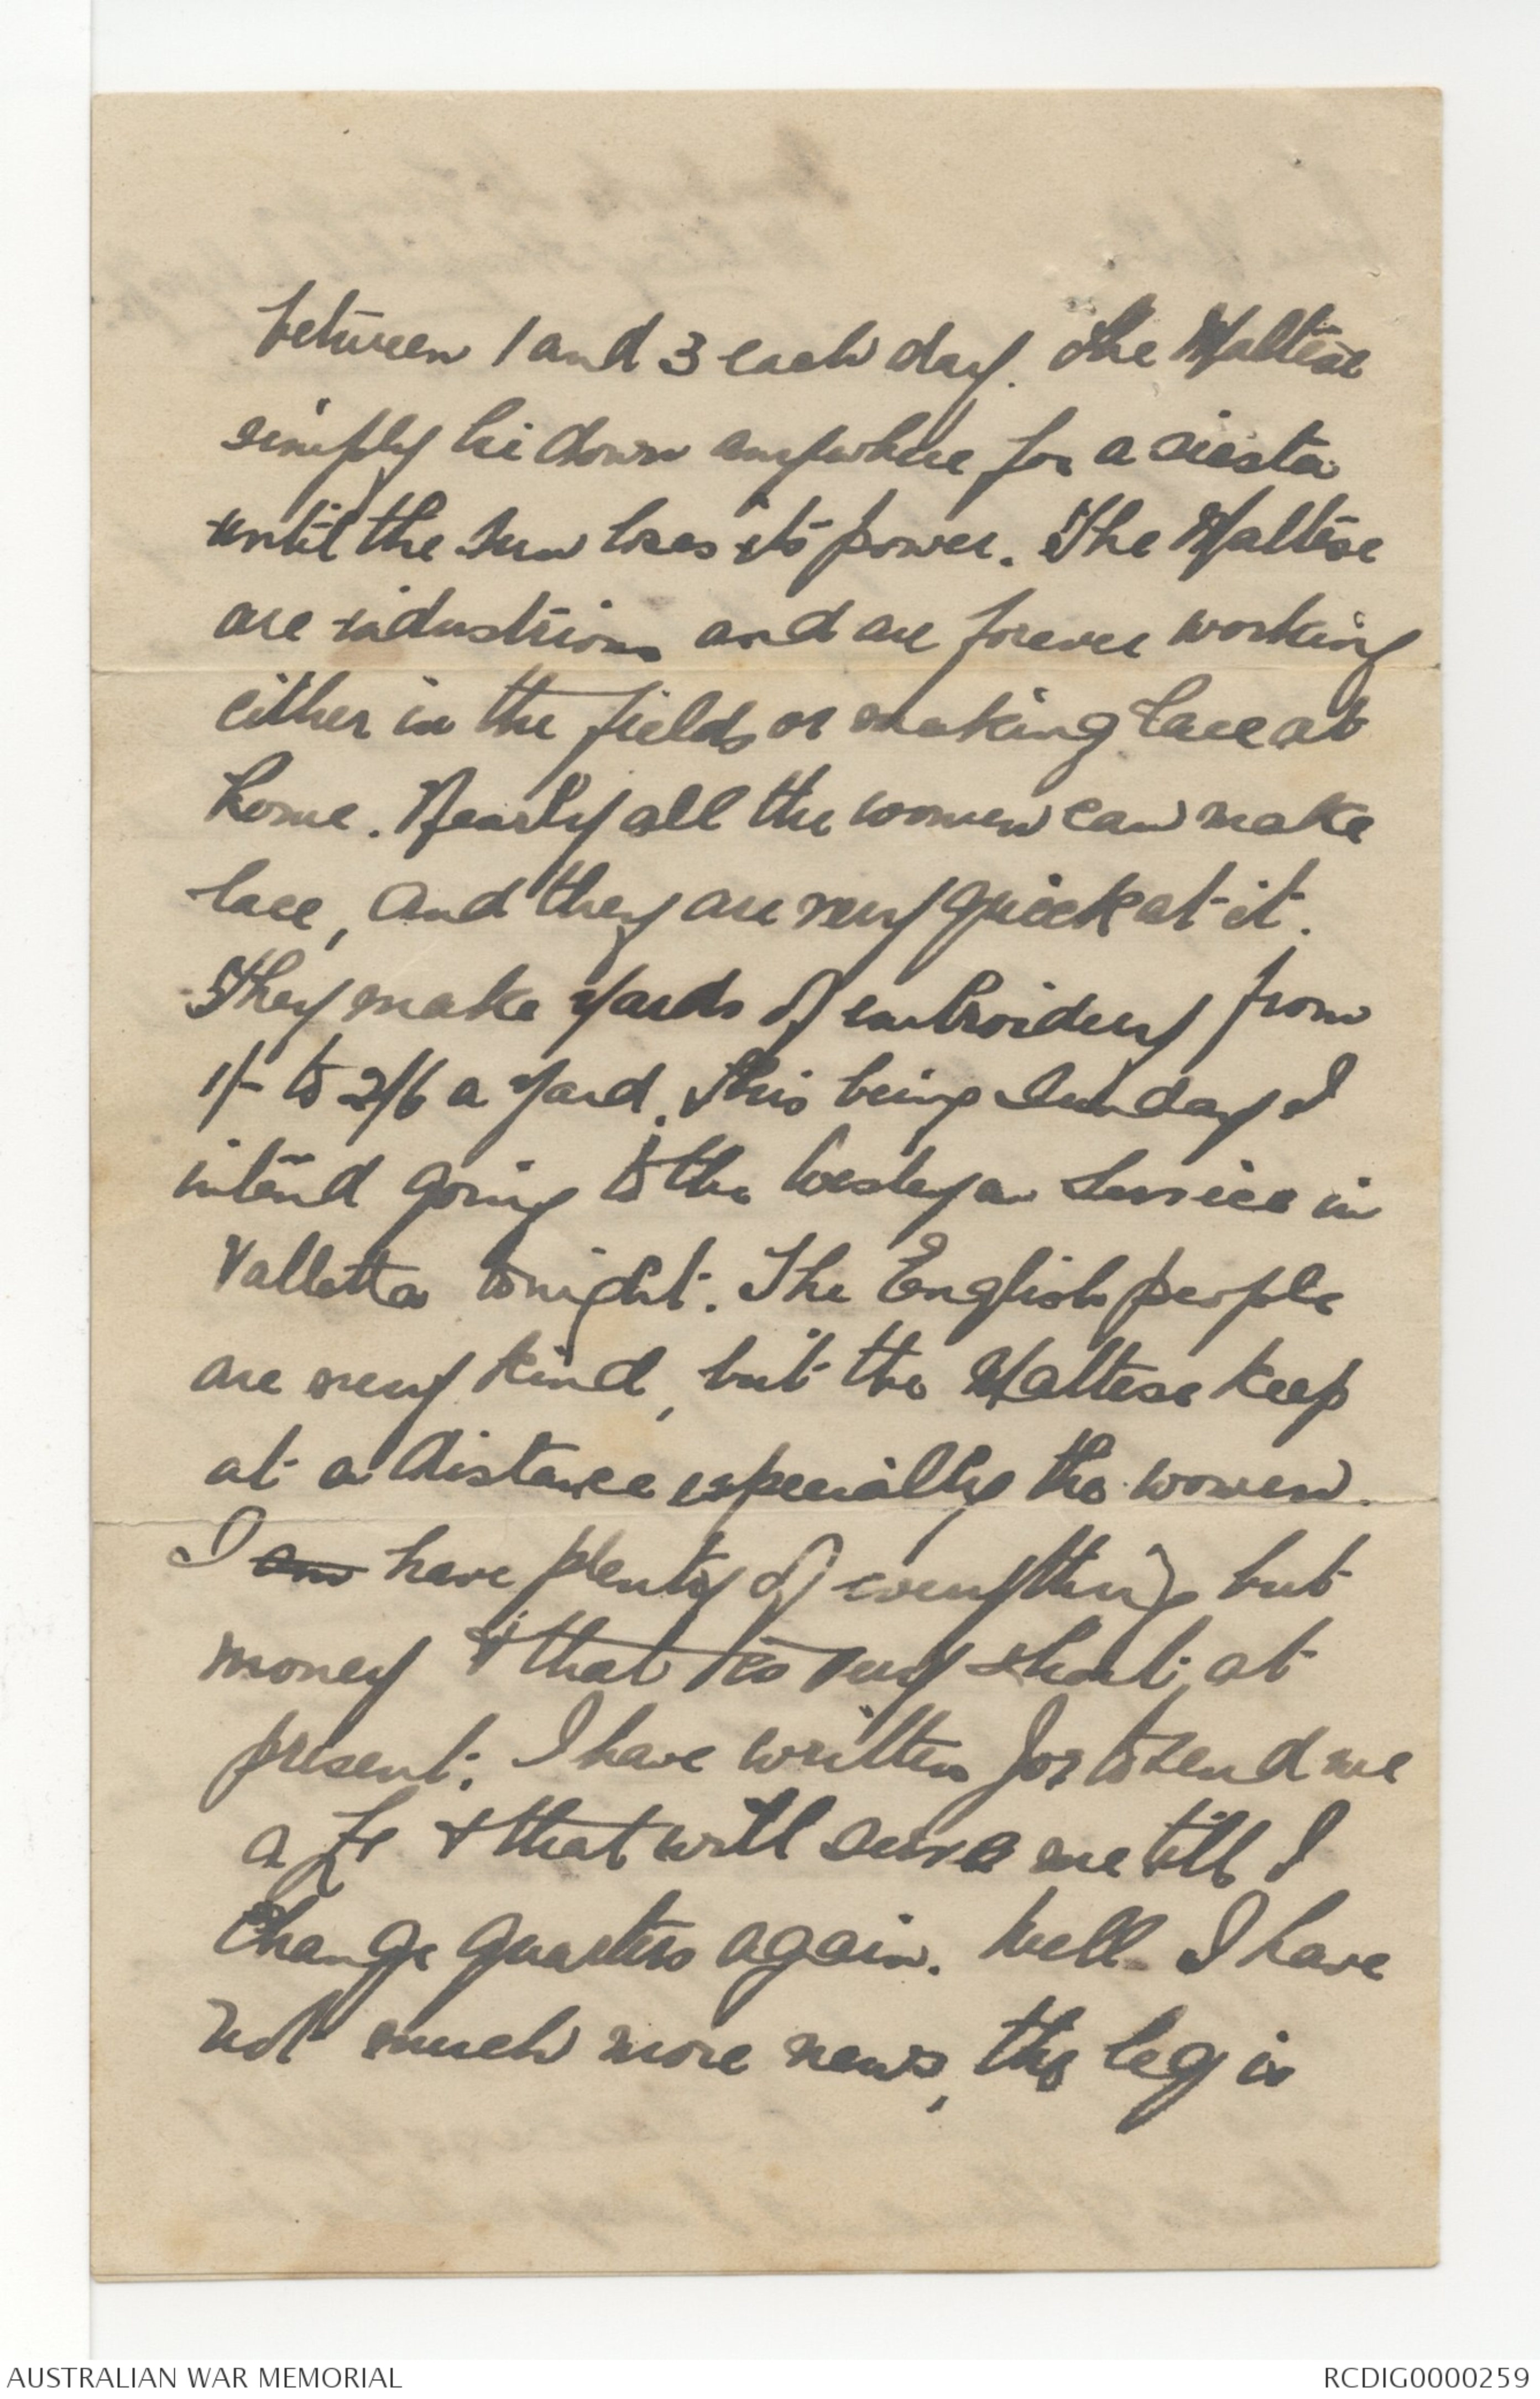 between 1 and 3 each day. The Maltese
simply lie down anywhere for a siesta
until the sun loses its power. The Maltese
are industrious and are forever working
either in the fields or making lace at
home. Nearly all the women can make
lace, and they are very quick at it.
They make yards of embroidery from
1/- to 2/6 a yard. This being Sunday I
intend going to the Wesleyan Service in
Valletta tonight. The English people
are very kind, but the Maltese keep
at a distance especially the women.
I am have plenty of everything but
money & that is very short at
present. I have written for to send me
a £ & that will serve me till I
change quarters again. Well I have
not much more news, the leg is
AUSTRALIAN WAR MEMORIAL
RCDIG0000259